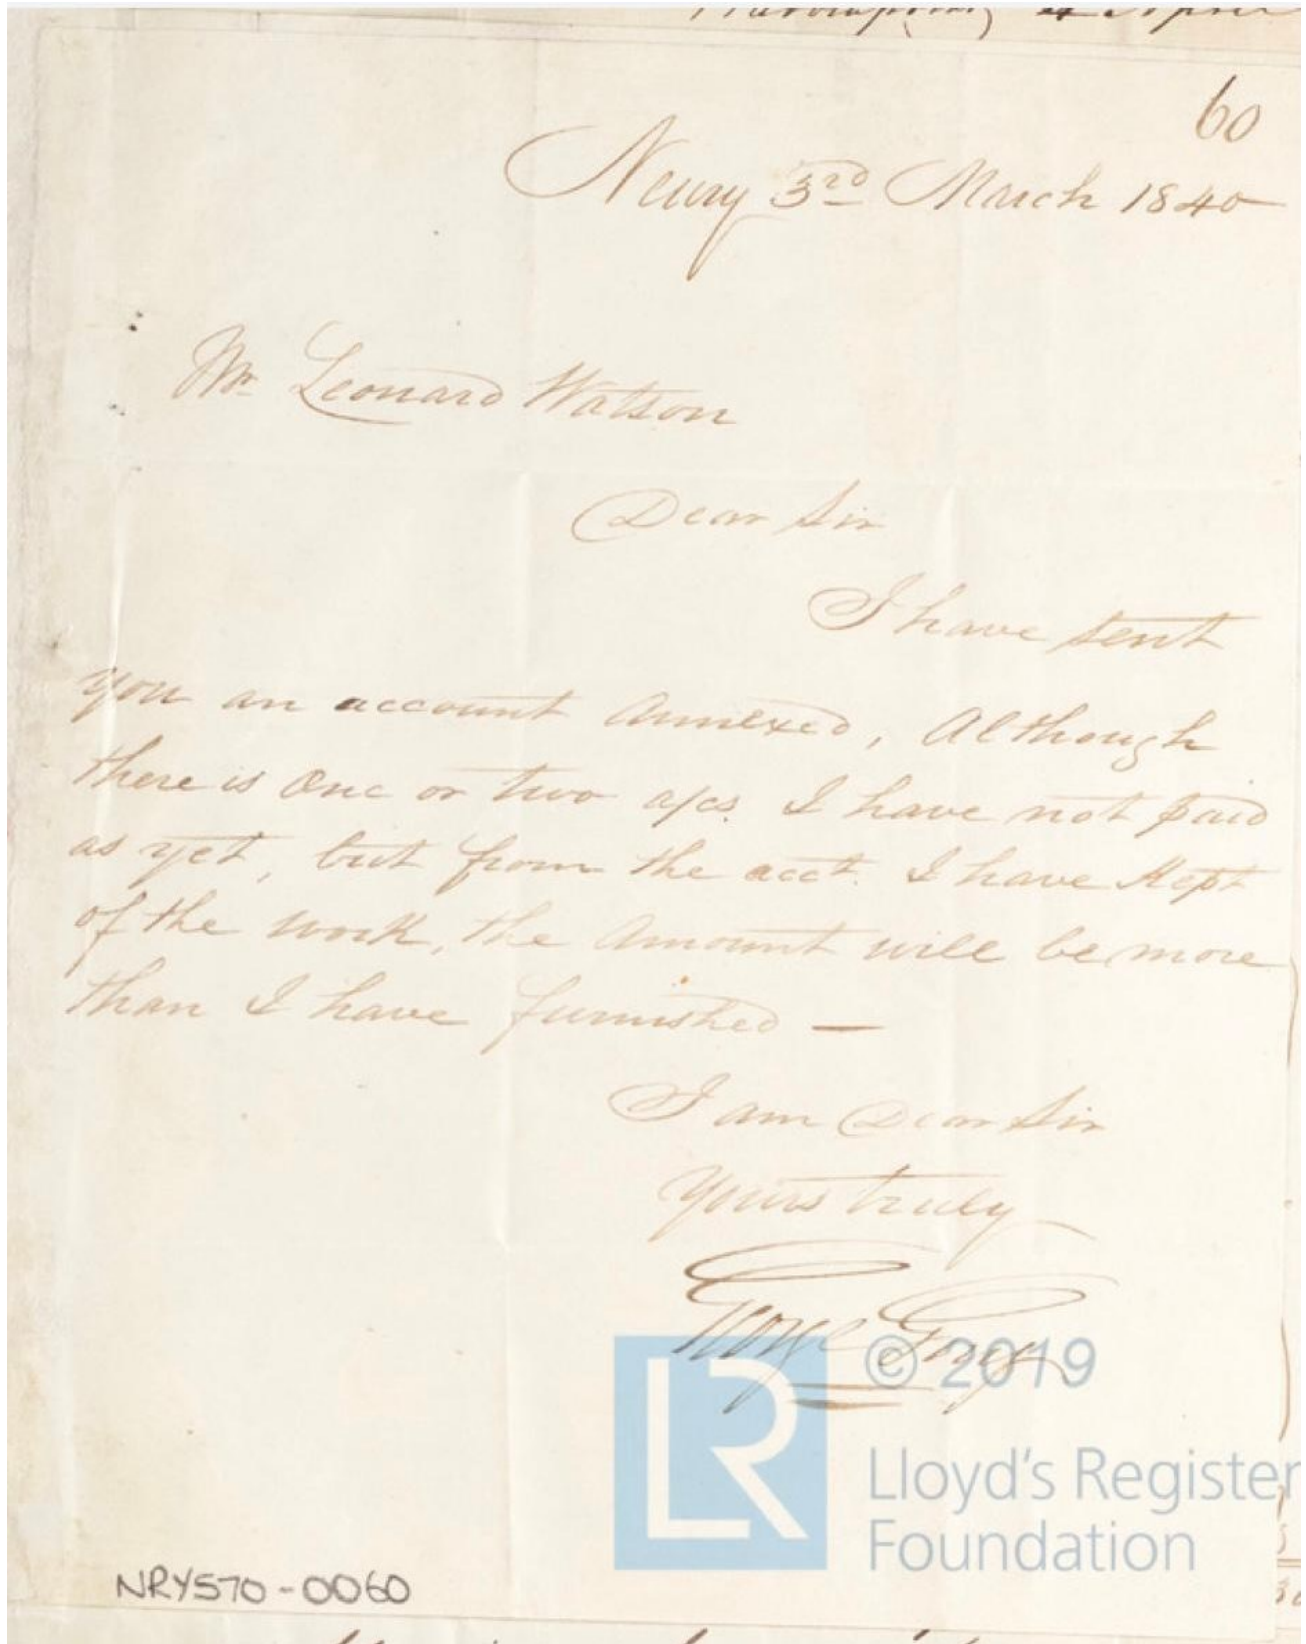 60
Newry 3rd March 1840
Mr Leonard Watson
Dear Sir
I have sent
you an account annexed, Although
there is One or two a/cs. I have not paid
as yet, but from the acct. I have Kept
of the work, the Amount will be more
than I have furnished —
I am Dear Sir
Yours truly
George
© 2019
LR
Lloyd's Register
Foundation
NRY570-0060